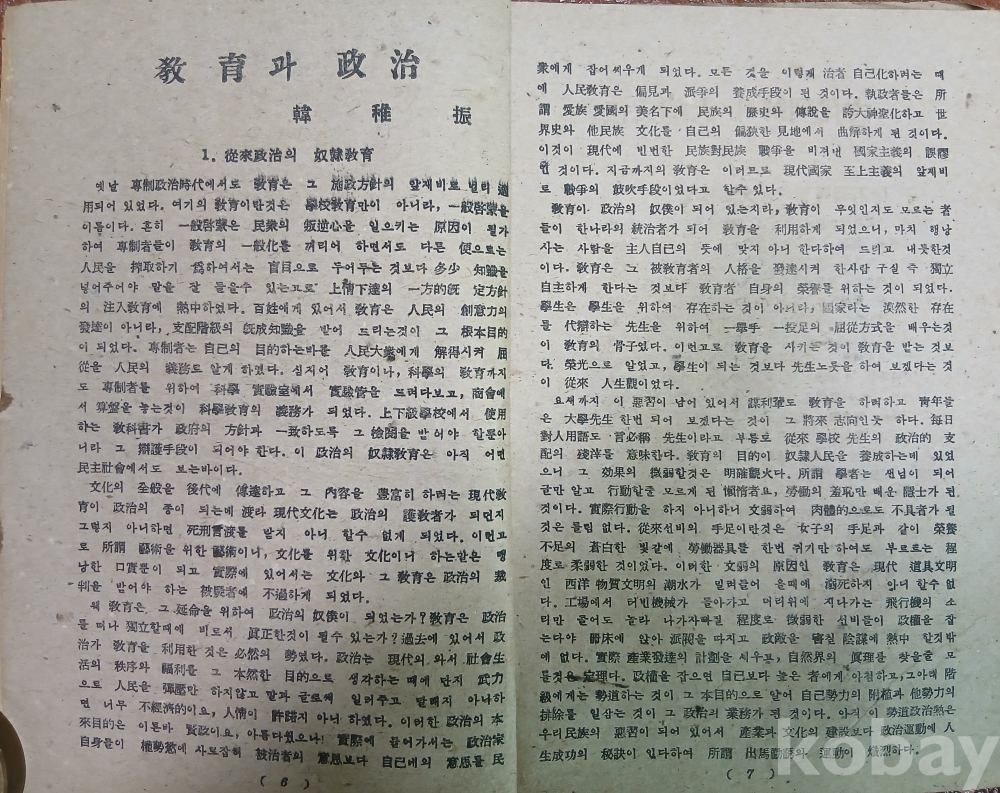 敎育과 政治
韓稚振
1. 從來政治의 奴隷敎育
옛날 專制政治時代에서도 敎育은 그 施政方針의 앞재비로 널리 適
用되어 있었다. 여기의 敎育이란것은 學校敎育만이 아니라, 一般啓蒙을
이름이다. 흔히 一般啓蒙은 民衆의 叛逆心을 일으키는 原因이 될가
하여 專制者들이 敎育의 一般化를 꺼리어 하면서도 다른 便으로는
人民을 搾取하기 爲하여서는 盲目으로 두어두는 것보다 多少 知識을
넣어주어야 말을 잘 들을수 있는고로 上情下達의 一方的旣 定方針
의 注入敎育에 熱中하였다. 百姓에게 있어서 敎育은 人民의 創意力의
發達이 아니라, 支配階級의 旣成知識을 받어 드리는것이 그 根本目的
이 되었다. 專制者는 自己의 目的하는바를 人民大衆에게 解得시켜 屈
從을 人民의 義務로 알게 하였다. 심지어 敎育이나, 科學의 敎育까지
도 專制者를 위하여 科學 實驗室에서 實驗管을 드려다보고, 商會에
서 算盤을 놓는것이 科學敎育의 義務가 되었다. 上下級學校에서 使用
하는 敎科書가 政府의 方針과 一致하도록 그 檢閱을 받어야 할뿐아
니라 그 辯護手段이 되어야 한다. 이 政治의 奴隷敎育은 아직 어떤
民主社會에서도 보는바이다.
文化의 全般을 後代에 傳達하고 그 內容을 豊富히 하려는 現代敎
育이 政治의 종이 되는데 따라 現代文化는 政治의 護敎者가 되던지
그렇지 아니하면 死刑言渡를 받지 아니 할수 없게 되었다. 이런고
로 所謂 藝術을 위한 藝術이니, 文化를 위한 文化이니 하는말은 맹
낭한 口實뿐이 되고 實際에 있어서는 文化와 그 敎育은 政治의 裁
判을 받어야 하는 被襲者에 不過하게 되었다.
웨 敎育은 그 延命을 위하여 政治의 奴僕이 되었는가? 敎育은 政治
를 떠나 獨立할때에 비로서 眞正한것이 될수 있는가? 過去에 있어서 政
治가 敎育을 利用한 것은 必然의 勢였다. 政治는 現代의 와서 社會生
活의 秩序와 福利를 그 本然한 目的으로 생각하는 때에 만지 武力
으로 人民을 彈壓만 하지않고 말과 글로써 일러주고 달래지 아나하
면 너무 不經濟的이요, 人情이 許諾지 아니 하였다. 이러한 政治의 本
來目的은 이른바 賢政이요, 아름다웠으나! 實際에 들어가서는 政治家
自身들이 權勢慾에 사로잡혀 被治者의 意思보다 自己네의 意思를 民
( 6 )
衆에게 잡어씨우게 되었다. 모든 것을 이렇게 治者 自己化하려는 때
에 人民敎育은 偏見과 派爭의 養成手段이 된 것이다. 執政者들은 所
謂 愛族 愛國의 美名下에 民族의 歷史와 傳說을 誇大神聖化하고 世
界史와 他民族 文化를 自己의 偏狹한 見地에서 曲解하게 된 것이다.
이것이 現代에 빈번한 民族對民族 戰爭을 미겨낸 國家主義의 誤謬
인 것이다. 지금까지의 敎育은 이러므로 現代國家 至上主義의 앞재비
로 戰爭의 鼓吹手段이었다고 할수 있다.
敎育이 政治의 奴僕이 되어 있는지라, 敎育이 무엇인지도 모르는 者
들이 한나라의 統治者가 되어 敎育을 利用하게 되었으니, 마치 행낭
사는 사람을 主人自己의 뜻에 맞지 아니 한다하여 드리고 내뜻한것
이다. 敎育은 그 被敎育者의 人格을 發達시켜 한사람 구실 즉 獨立
自主하게 한다는 것보다 敎育者 自身의 榮譽를 위하는 것이 되었다.
學生은 學生을 위하여 存在하는 것이 아니라, 國家라는 漠然한 存在
를 代辯하는 先生을 위하여 一擧手 一投足의 屈從方式을 배우는것
이 敎育의 骨子였다. 이런고로 敎育을 사키는 것이 敎育을 받는 것보
다 榮光으로 알었고, 學生이 되는 것보다 先生노릇을 하여 보겠다는 것
이 從來 人生觀이었다.
요새까지 이 惡習이 남어 있어서 謀利輩도 敎育을 하려하고 靑年들
은 大學先生 한번 되어 보겠다는 것이 그 將來 志向인듯 하다. 每日
對人用語도 言必稱 先生이라고 부름도 從來 學校 先生의 政治的 支
配의 殘滓를 意味한다. 敎育의 目的이 奴隷人民을 養成하는데 있었
으니 그 効果의 微弱할것은 明確觀火다. 所謂 學者는 샌님이 되어
글만 알고 行動할줄 모르게 된 懶惰者요, 勞働의 羞恥만 배운 隱士가 된
것이다. 實際行動을 하지 아니하니 文弱하여 肉體的으로도 不具者가 될
것은 틀림 없다. 從來선비의 手足이란것은 女子의 手足과 같이 榮養
不足의 蒼白한 빛같에 勞働器具를 한번 쥐기만 하여도 부르르는 程
度로 柔弱한 것이었다. 이러한 文弱의 原因인 敎育은 現代 道具文明
인 西洋 物質文明의 潮水가 밀려들어 올때에 溺死하지 아니 할수 없
다. 工場에서 터빈機械가 돌아가고 머리위에 지나가는 飛行機의 소
리만 들어도 놀라 나가자빠질 程度로 微弱한 선비들이 政權을 잡
는다야 器床에 앉아 派閥을 따지고 政敵을 害칠 陰謀에 熱中 할것밖
에 없다. 實際 産業發達의 計劃을 세우고, 自然界의 眞理를 찾을줄 모
를것은 定理다. 政權을 잡으면 自己보다 높은 者에게 아첨하고, 그아래 階
級에게는 勢道하는 것이 그 本目的으로 알어 自己勢力의 附植과 他勢力의
排除를 일삼는 것이 그 政治의 業務가 된 것이다. 아직 이 勢道政治熱은
우리民族의 惡習이 되어 있어서 産業과 文化의 建設보다 政治運動에 人
生成功의 秘訣이 있다하여 所謂 出馬勸誘와 運動이 熾烈하다.
( 7 )
kobay